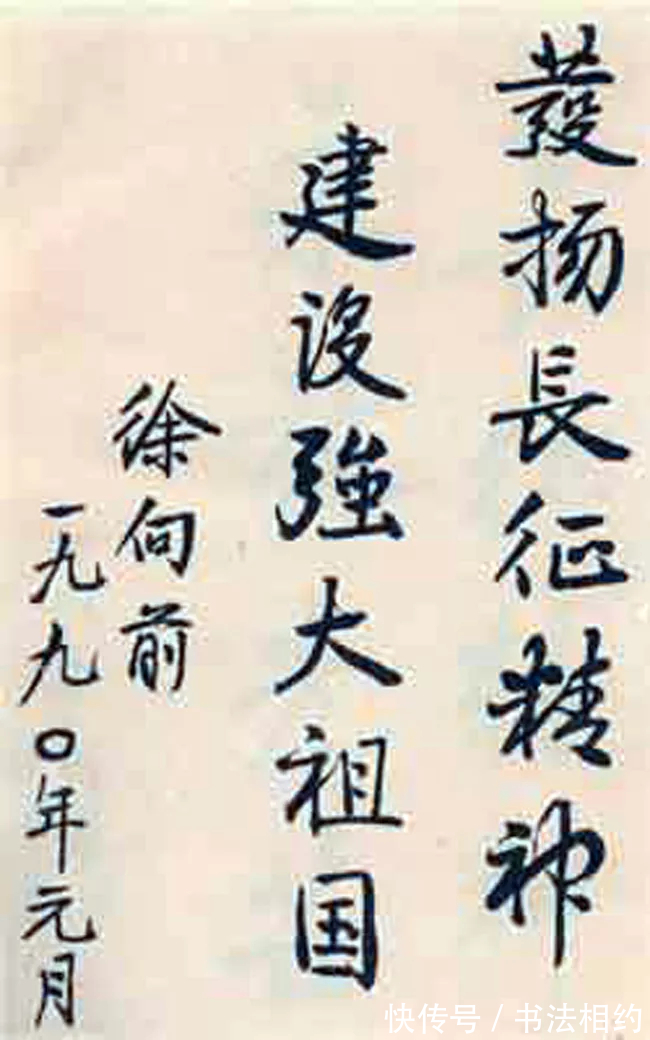 發扬長征精神
建设強大祖国
徐向前
一九九〇年元月
快传号 / 书法相约